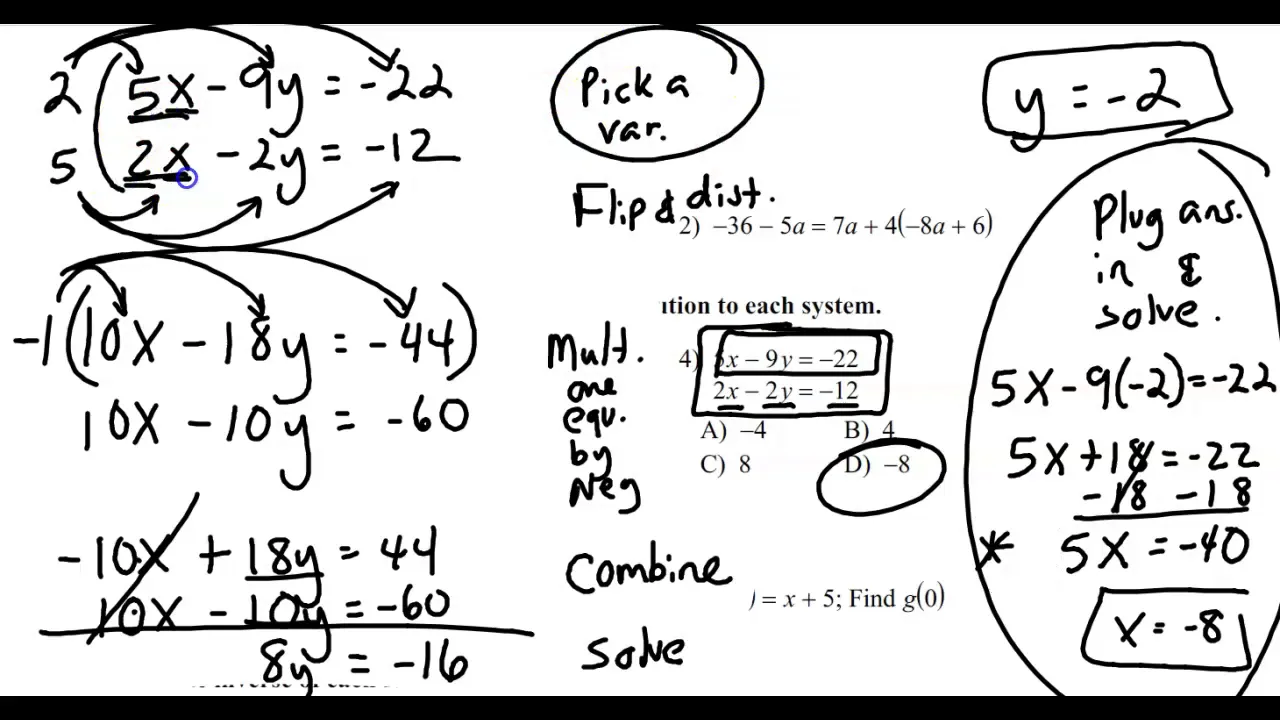 2 5x - 9y = -22
5 2x - 2y = -12
-1(10x - 18y = -44)
10x - 10y = -60
-10x + 18y = 44
10x - 10y = -60
8y = -16
Pick a
var.
Flip & dist.
2) −36 − 5a = 7a + 4(−8a + 6)
ution to each system.
Mult.
one
equ.
by
Neg
4) 5x − 9y = −22
2x − 2y = −12
A) −4 B) 4
C) 8 D) −8
Combine
) = x + 5; Find g(0)
solve
y = -2
Plug ans.
in &
solve.
5x - 9(-2) = -22
5x + 18 = -22
-18 -18
* 5x = -40
x = -8